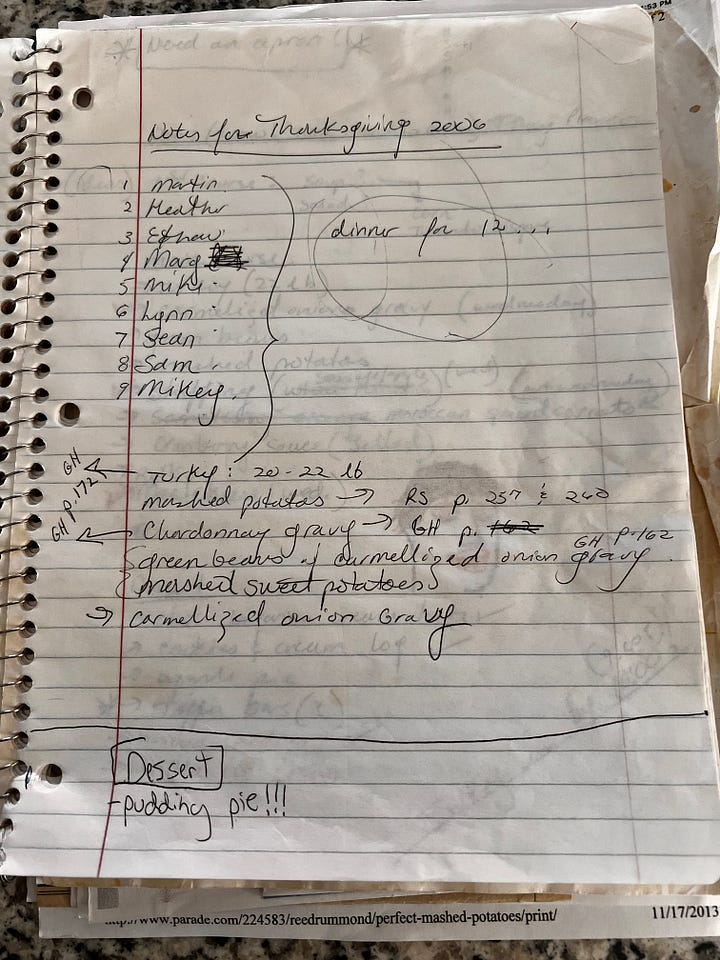 * Need an apron! *
:53 PM
2
Notes for Thanksgiving 2006
1 Martin
2 Heather
3 Ethan
4 Marg
5 Mike
6 Lynn
7 Sean
8 Sam
9 Mikey
dinner for 12...
GH ← Turky: 20-22 lb
mashed potatos → RS p. 257 & 240
GH p.172 ← Chardonnay gravy → GH p. 162
GH p.162
{green beans w/ carmellized onion gravy.
{mashed sweet potatoes}
→ carmellized onion Gravy
Dessert
-pudding pie!!!
http://www.parade.com/224583/reedrummond/perfect-mashed-potatoes/print/
11/17/2013